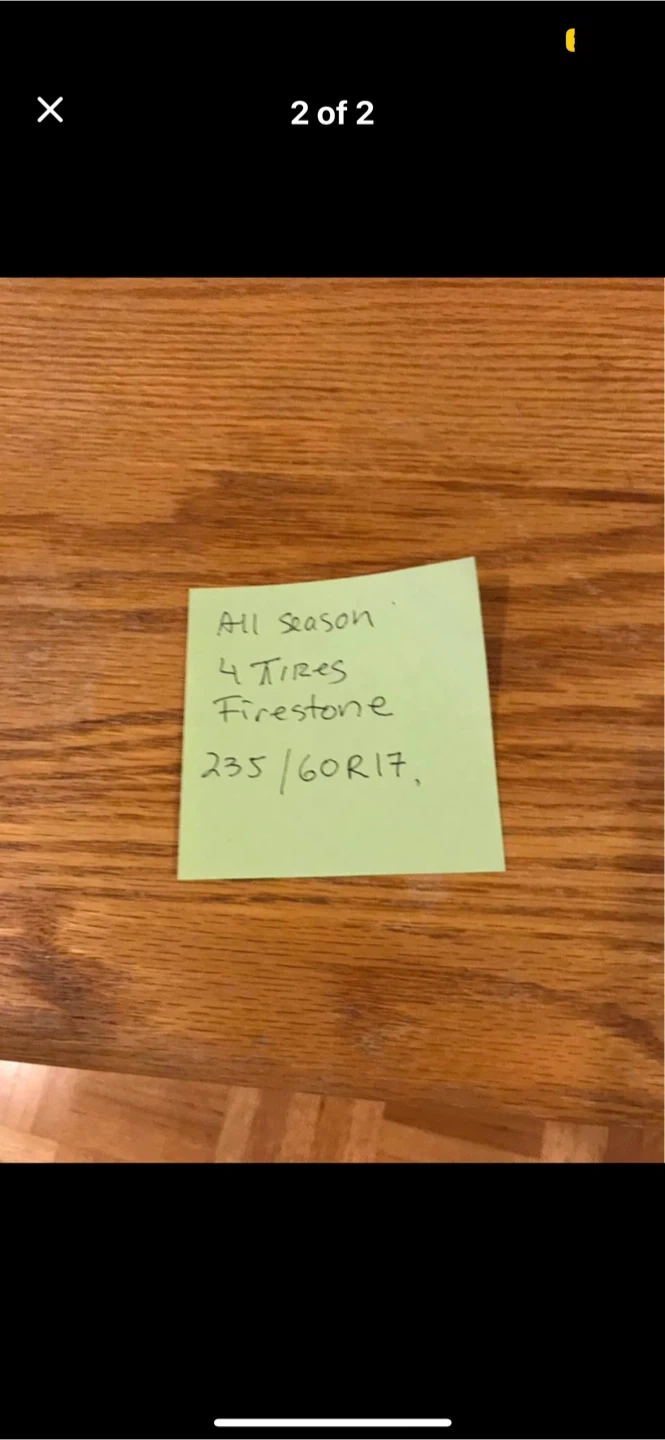 2 of 2
All season
4 TIRes
Firestone
235/60R17.